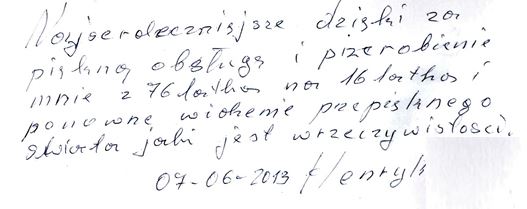 Najserdeczniejsze dzięki za
piękną obsługę i przerobienie
mnie z 76 latka na 16 latka i
ponowne widzenie przepięknego
świata jaki jest w rzeczywistości.
07-06-2013 Henryk